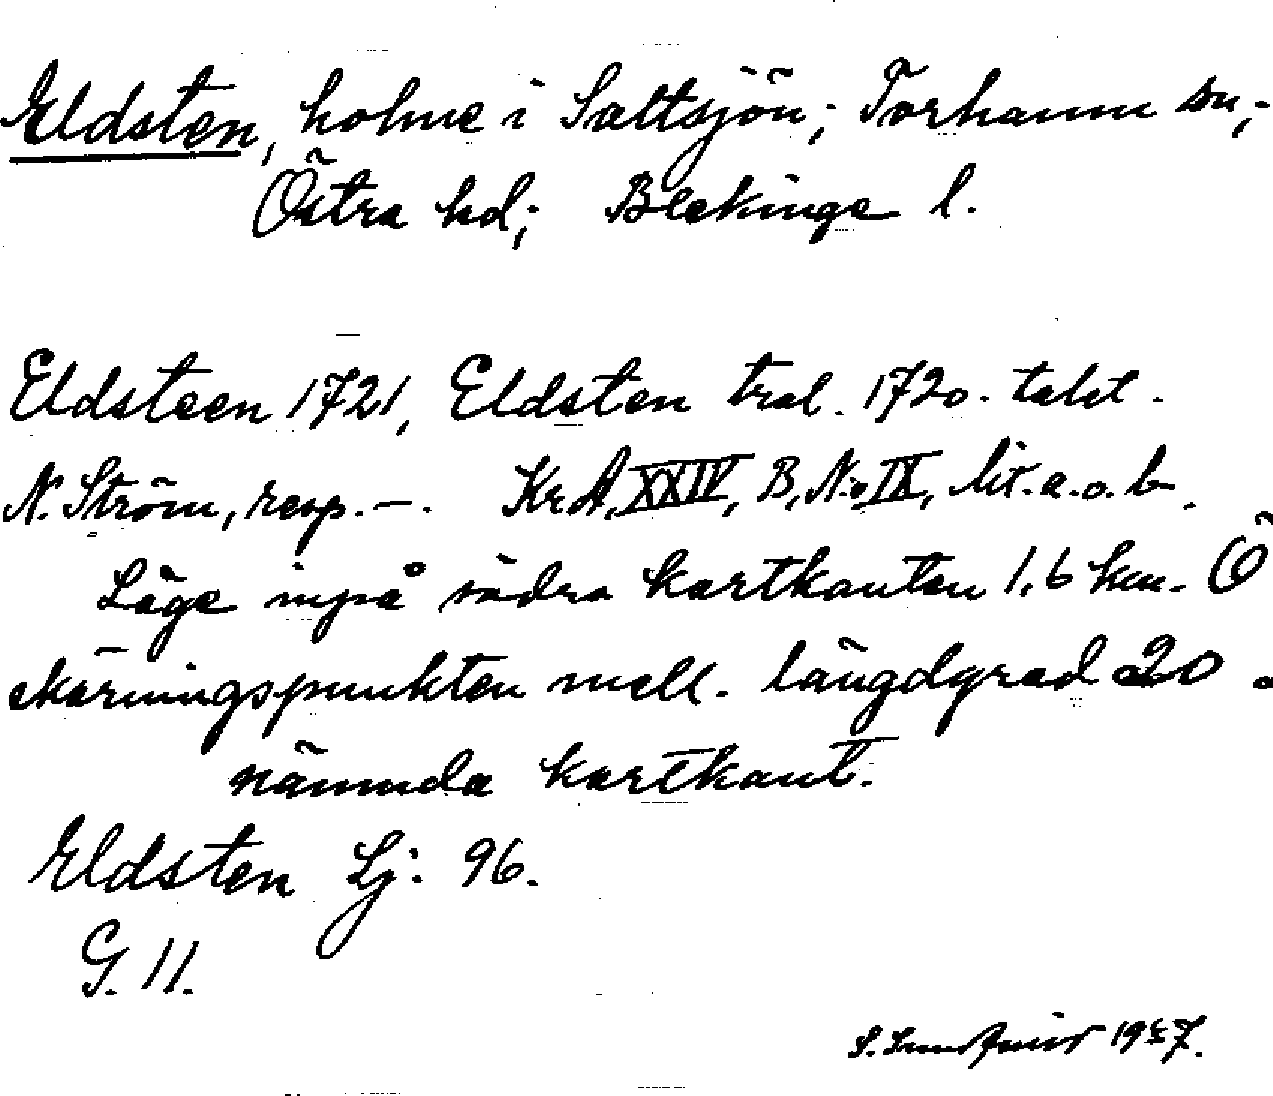 Eldsten, holme i Saltsjön; Torhamn sn;
Östra hd; Blekinge l.
Eldsteen 1721, Eldsten trol. 1720-talet.
N. Ström, resp. —. Kr.A. XXIV, B, N:o IX, lit. a. o. b.
Läge inpå södra kartkanten 1,6 km. Ö
skärningspunkten mell. längdgrad 20 o
nämnda kartkant.
Eldsten Lj: 96.
G. 11.
S. 1947.